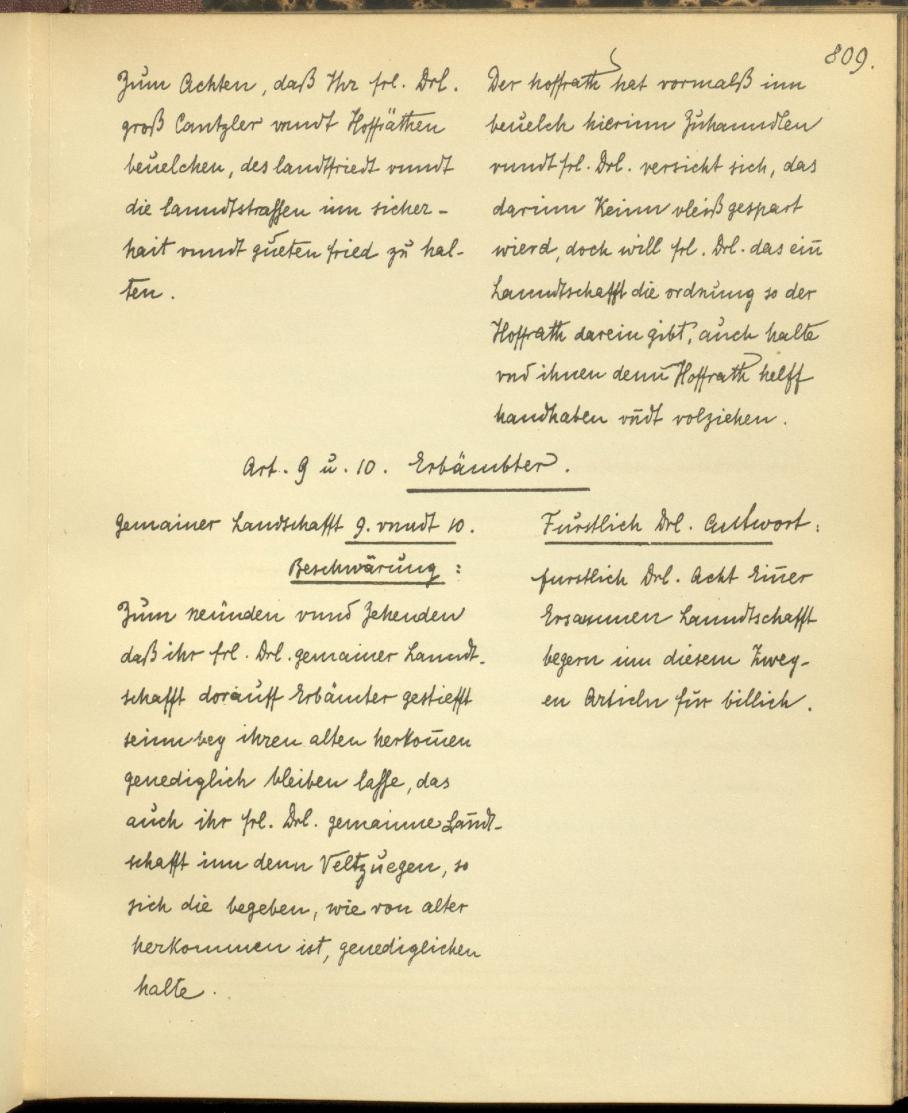 809.
Zum Achten, daß Ihr frl. Drl.
groß Cantzler vnndt Hoffräthen
beuelchen, des landtfriedt vnndt
die lanndtstraſſen inn sicher-
hait vnndt gueten fried zu hal-
ten.
Der Hoffrath hat vormalß inn
beuelch hierinn Zuhanndlen
vnndt frl. Drl. versicht sich, das
darinn Keinn vleiß gespart
wierd, doch will frl. Drl. das ein̄
Lanndtschafft die ordnung so der
Hoffrath darein gibt, auch halte
vnd ihnen denn̄ Hoffrath helff
handhaben vn̄dt volziehen.
Art. 9 u. 10. Erbämbter.
Gemainer Landschafft 9. vnndt 10.
Beschwärung:
Zum neünden vnnd Zehenden
daß ihr frl. Drl. gemainer Lanndt-
schafft dorauff Erbämter gestiefft
seinn bey ihren alten herkom̄en
genediglich bleiben laſſe, das
auch ihr frl. Drl. gemainne Lan̄dt-
schafft inn denn Veltzuegen, so
sich die begeben, wie von alter
herkommen ist, genediglichen
halte.
Furstlich Drl. Anttwort:
furstlich Drl. Acht Einer
Ersammen Lanndtschafft
begern inn diesem Zwey-
en Articln für billich.